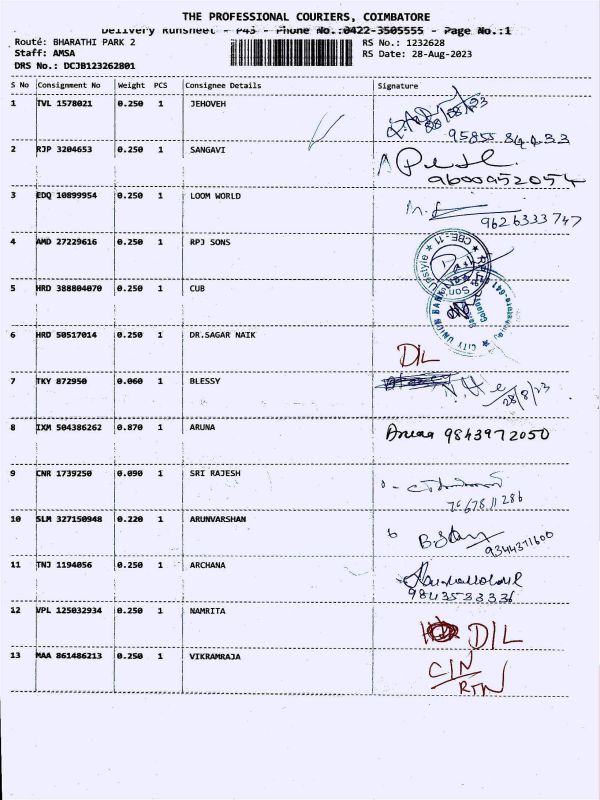 THE PROFESSIONAL COURIERS, COIMBATORE
Delivery Runsheet - P43 - Phone No.:0422-3505555 - Page No.:1
Route: BHARATHI PARK 2 RS No.: 1232628
Staff: AMSA RS Date: 28-Aug-2023
DRS No.: DCJB123262801
S No Consignment No Weight PCS Consignee Details Signature
1 TVL 1578021 0.250 1 JEHOVEH 28/08/23
2 RJP 3204653 0.250 1 SANGAVI
9600952054
3 EDQ 10899954 0.250 1 LOOM WORLD
9626333747
4 AMD 27229616 0.250 1 RPJ SONS
CBE-11
5 HRD 388804070 0.250 1 CUB
CITY UNION BANK
6 HRD 50517014 0.250 1 DR.SAGAR NAIK
D/L
7 TKY 872950 0.060 1 BLESSY
28/8/23
8 IXM 504386262 0.870 1 ARUNA
Aruna 9843972050
9 CNR 1739250 0.090 1 SRI RAJESH
7067811286
10 SLM 327150948 0.220 1 ARUNVARSHAN
9344371600
11 TNJ 1194056 0.250 1 ARCHANA
9843533336
12 VPL 125032934 0.250 1 NAMRITA
D/L
13 MAA 861486213 0.250 1 VIKRAMRAJA
C/N
RTN